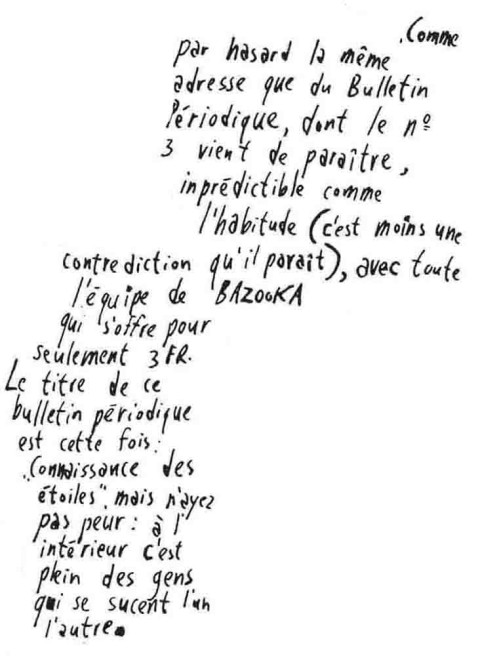 .Comme
par hasard la même
adresse que du Bulletin
Périodique, dont le nº
3 vient de paraître,
inprédictible comme
l'habitude (c'est moins une
contrediction qu'il parait), avec toute
l'équipe de BAZOOKA
qui s'offre pour
seulement 3 FR.
Le titre de ce
bulletin périodique
est cette fois:
"Connaissance des
étoiles", mais n'ayez
pas peur: à l'
intérieur c'est
plein des gens
qui se sucent l'un
l'autre.